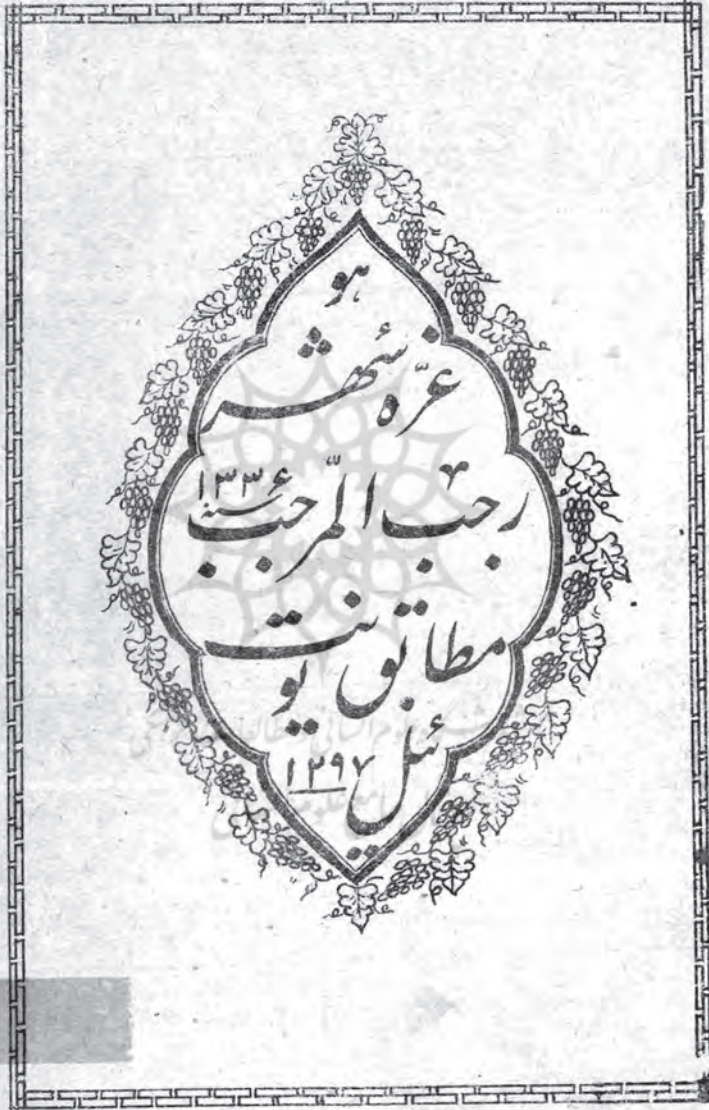 هو
غرّه شهر
رجب المرّجب سنه ۱۳۳۶
مطابق یونت
ئیل ۱۲۹۷